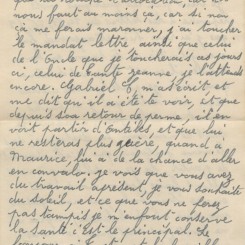 nous faut au moins ça, car si non
çà me ferais maronner. j'ai toucher
le mandat lettre ainsi que celui
de l'Oncle que je toucherais ces jours
ci, celui de tante Jeanne, je l'attends
encore. Gabriel m'as écrit et
me dit qu'il a été te voir, et que
depuis son retour de perme, il en
voit partir d'Entilles, et que lui
ne restera plus guère, quand a
Maurice, lui a de la chance d'aller
en convalo. je vois que vous avez
du travail à présent, je vous souhaite
du soleil, et ce que vous ne ferez
pas tampis je n'enfort conserve
la Santé c'est le principal. Le